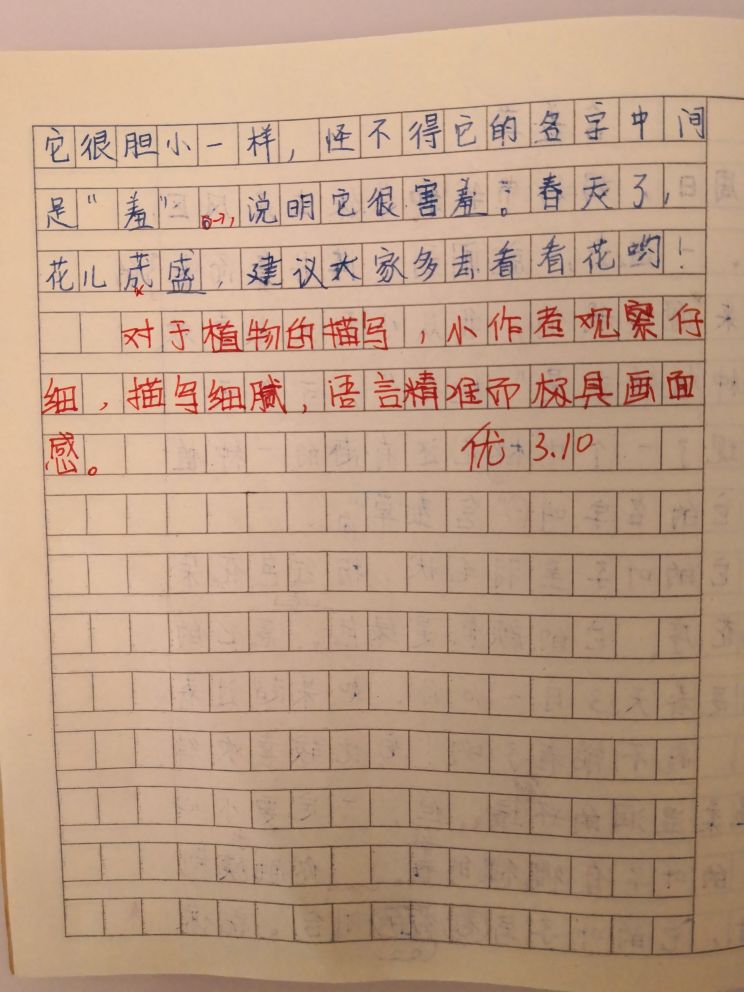 它很胆小一样，怪不得它的名字中间
是“羞”，说明它很害羞。春天了，
花儿茂盛，建议大家多去看看花哟！
对于植物的描写，小作者观察仔
细，描写细腻，语言精准而极具画面
感。 优 3.10